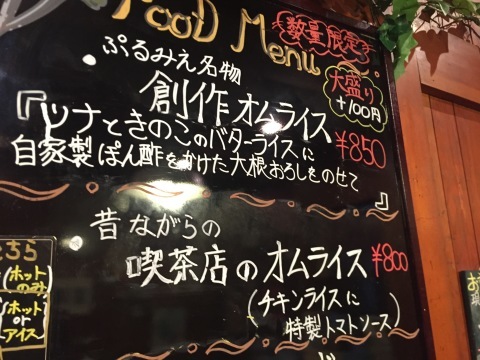 FooD Menu
数量限定
ぷるみえ名物
大盛り
+100円
創作オムライス
¥850
『ツナときのこのバターライスに
自家製ぽん酢をかけた大根おろしをのせて』
昔ながらの
喫茶店のオムライス ¥800
(チキンライスに
特製トマトソース)
ホット
のみ
ホット
or
アイス